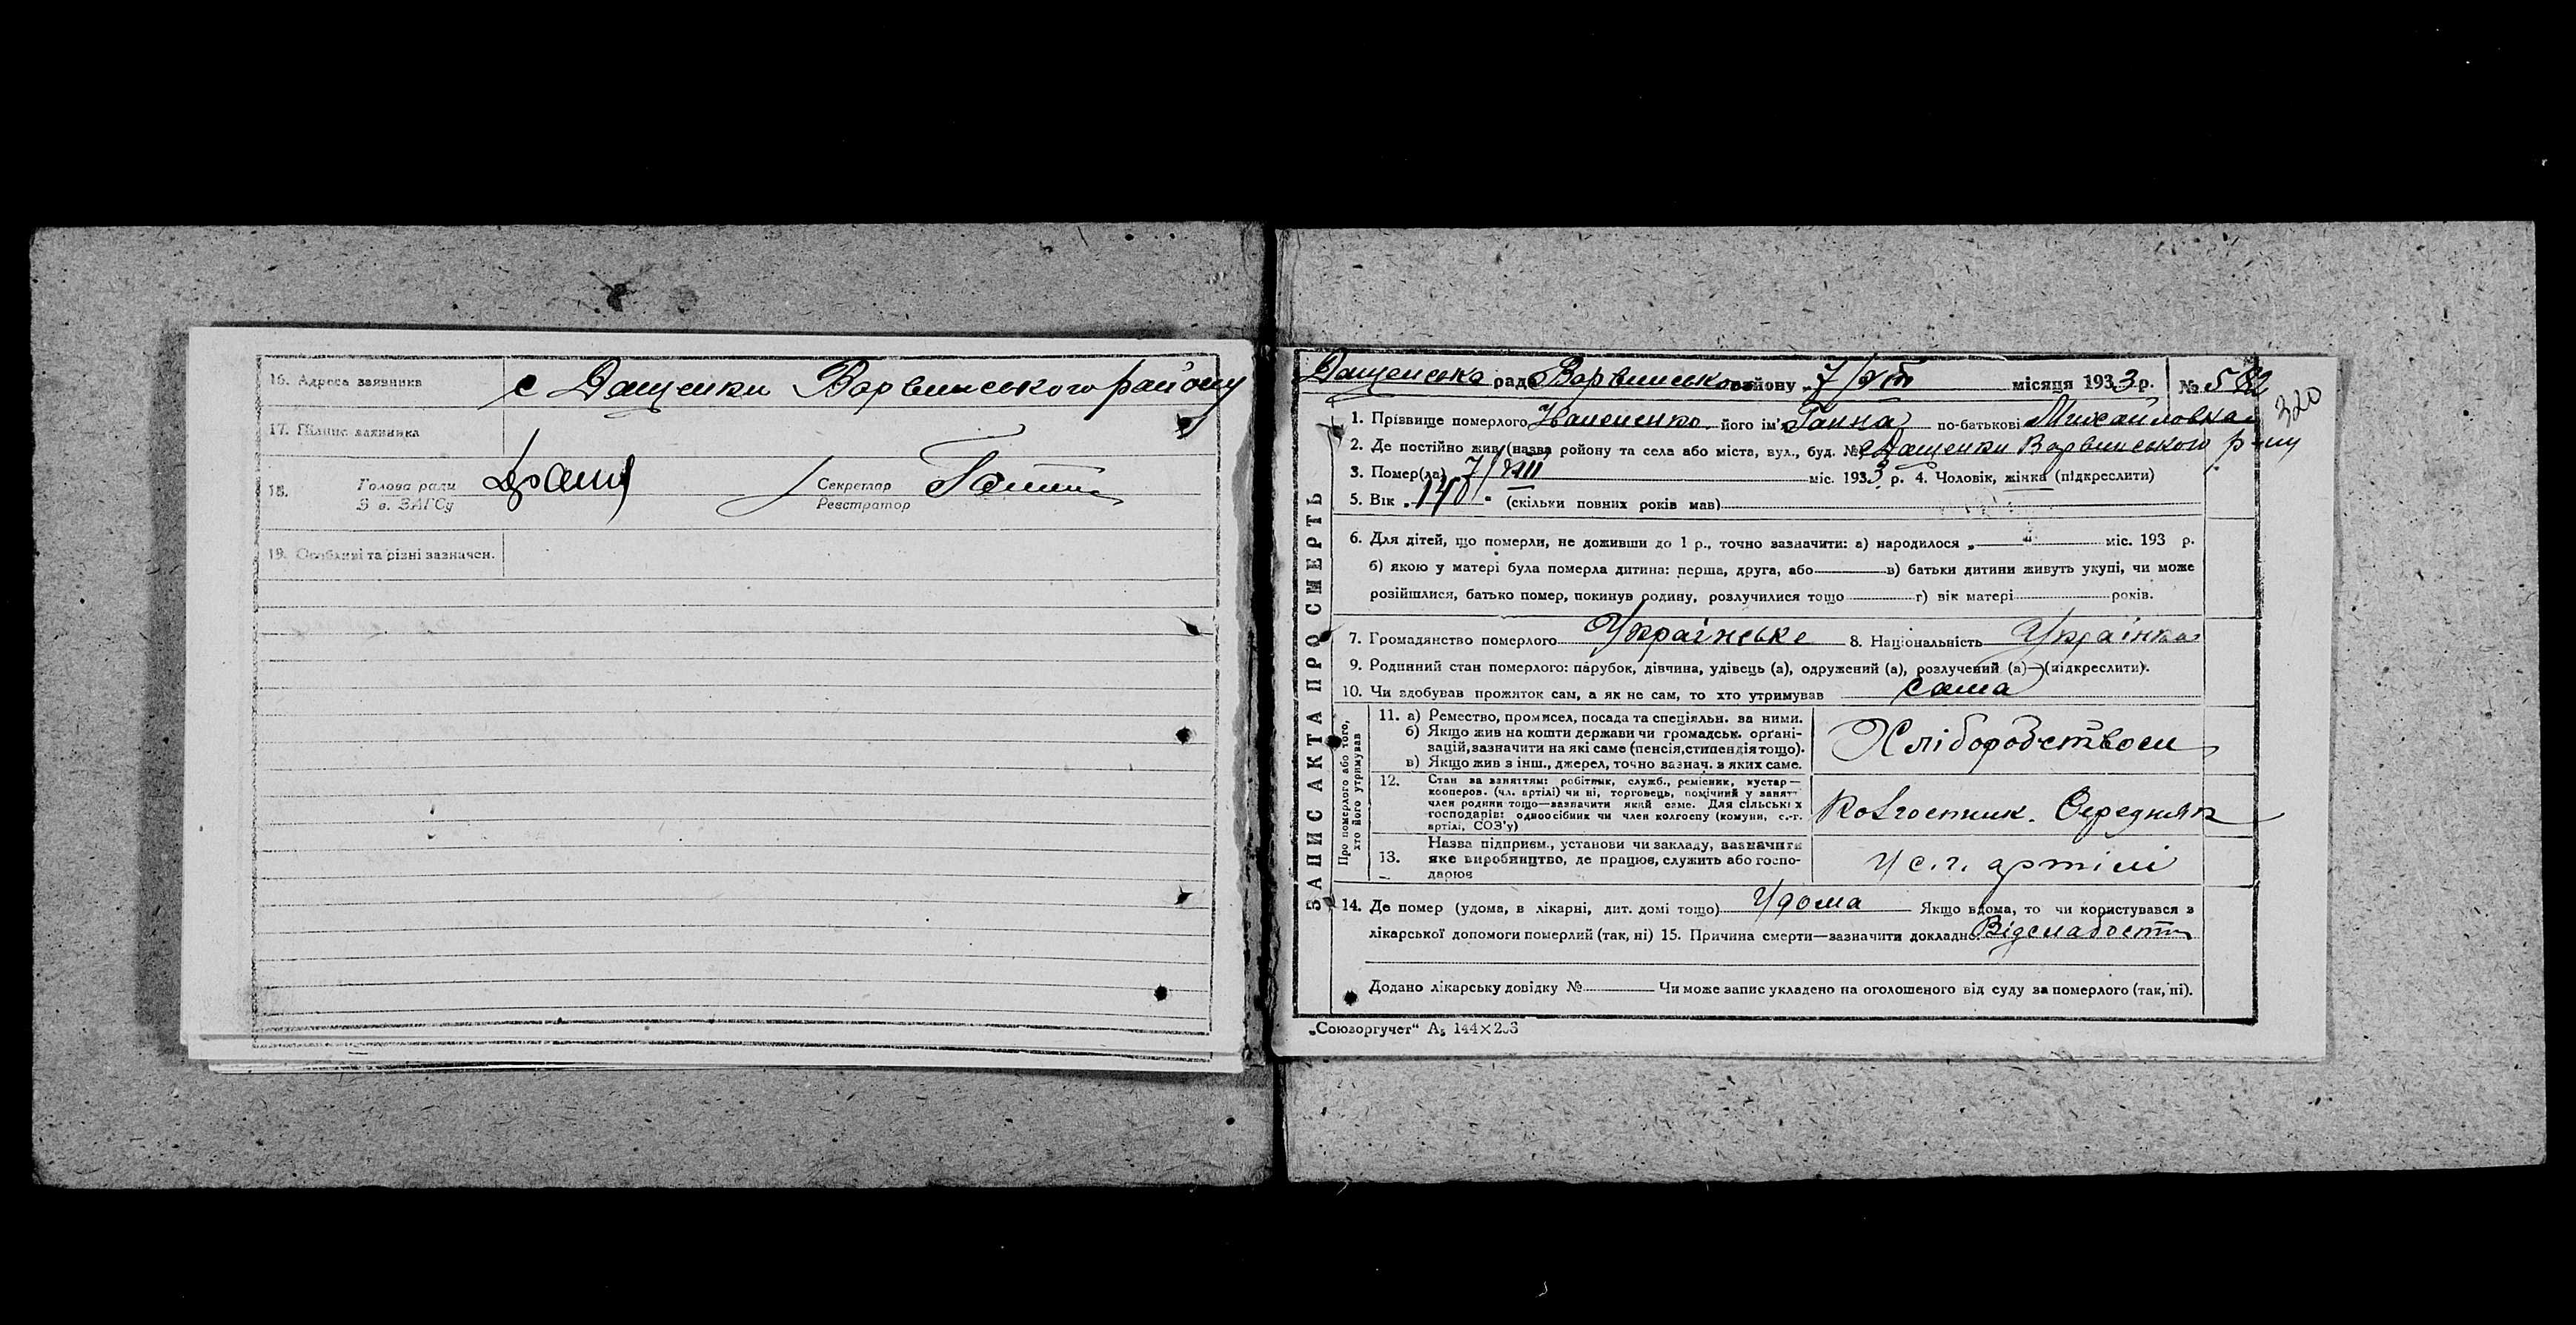 16. Адреса заявника с Дащенки Варвинського району
17. Підпис заявника
18. Голова ради Секретар
З в. ЗАГСу Реєстратор
19. Особливі та різні зазначен.
Дащенська рада Варвинськ району „7/ місяця 1933 р. № 582
320
ЗАПИС АКТА ПРО СМЕРТЬ
1. Прізвище померлого його ім'я Ганна по-батькові Михайловна
2. Де постійно жив (назва району та села або міста, вул., буд. № с Дащенки Варвинського р-ну
3. Помер(ла) 7/VIII міс. 1933 р. 4. Чоловік, жінка (підкреслити)
5. Вік „ " (скільки повних років мав)
6. Для дітей, що померли, не доживши до 1 р., точно зазначити: а) народилося „ міс. 193 р.
б) якою у матері була померла дитина: перша, друга, або в) батьки дитини живуть укупі, чи може
розійшлися, батько помер, покинув родину, розлучилися тощо г) вік матері років.
7. Громадянство померлого Українське 8. Національність Українка
9. Родинний стан померлого: парубок, дівчина, удівець (а), одружений (а), розлучений (а)—(підкреслити).
10. Чи здобував прожиток сам, а як не сам, то хто утримував сама
Про померлого або того,
хто його утримував
11. а) Ремество, промисел, посада та спеціяльн. за ними.
б) Якщо жив на кошти держави чи громадськ. органі-
зацій, зазначити на які саме (пенсія, стипендія тощо).
в) Якщо жив з інш., джерел, точно зазнач. з яких саме.
Хліборобством
12. Стан за заняттям: робітник, служб., ремісник, кустар—
кооперов. (чл. артілі) чи ні, торговець, помічний у занят
член родини тощо—зазначити який саме. Для сільських
господарів: одноосібник чи член колгоспу (комуни, с.-г.
артілі, СОЗ'у)
Колгоспник. Середняк
13. Назва підприєм., установи чи закладу, зазначити
яке виробництво, де працює, служить або госпо-
дарює
У с.г. артілі
14. Де помер (удома, в лікарні, дит. домі тощо) Удома Якщо вдома, то чи користувався з
лікарської допомоги померлий (так, ні) 15. Причина смерти—зазначити докладно Від слабости
Додано лікарську довідку № Чи може запис укладено на оголошеного від суду за померлого (так, ні).
„Союзоргучет“ А₅ 144×203